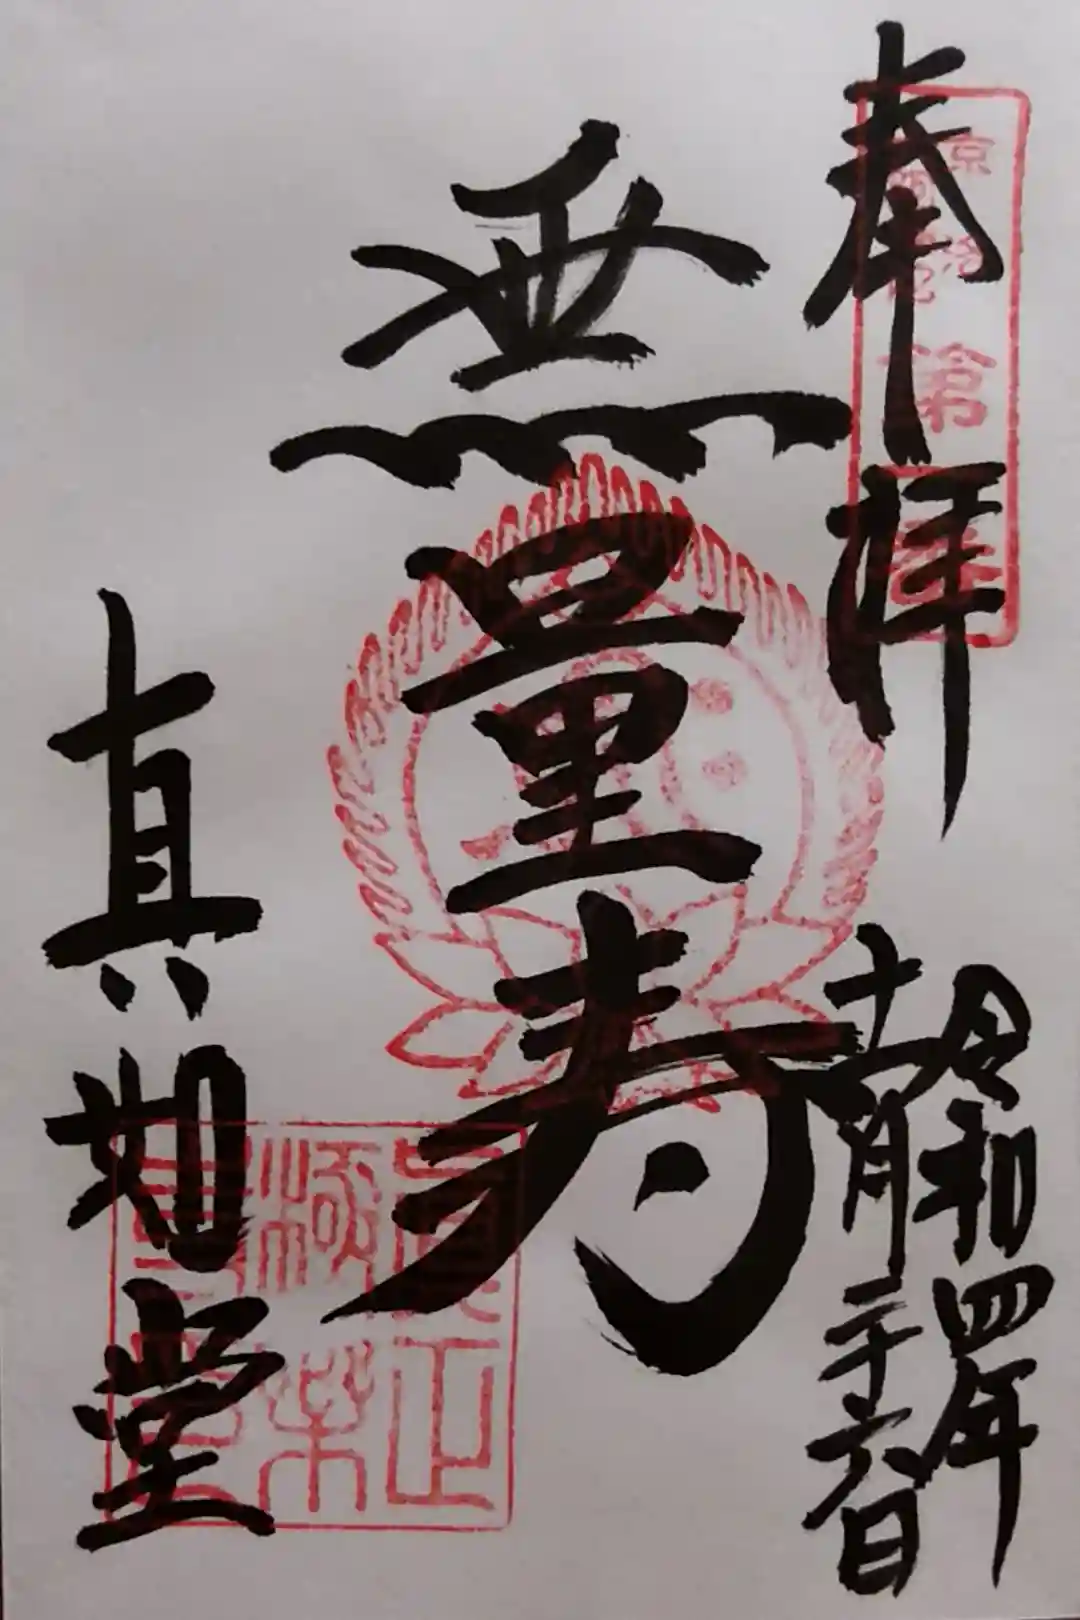 奉拝
令和四年
十一月二十六日
無量寿
真如堂
第
真正
極楽